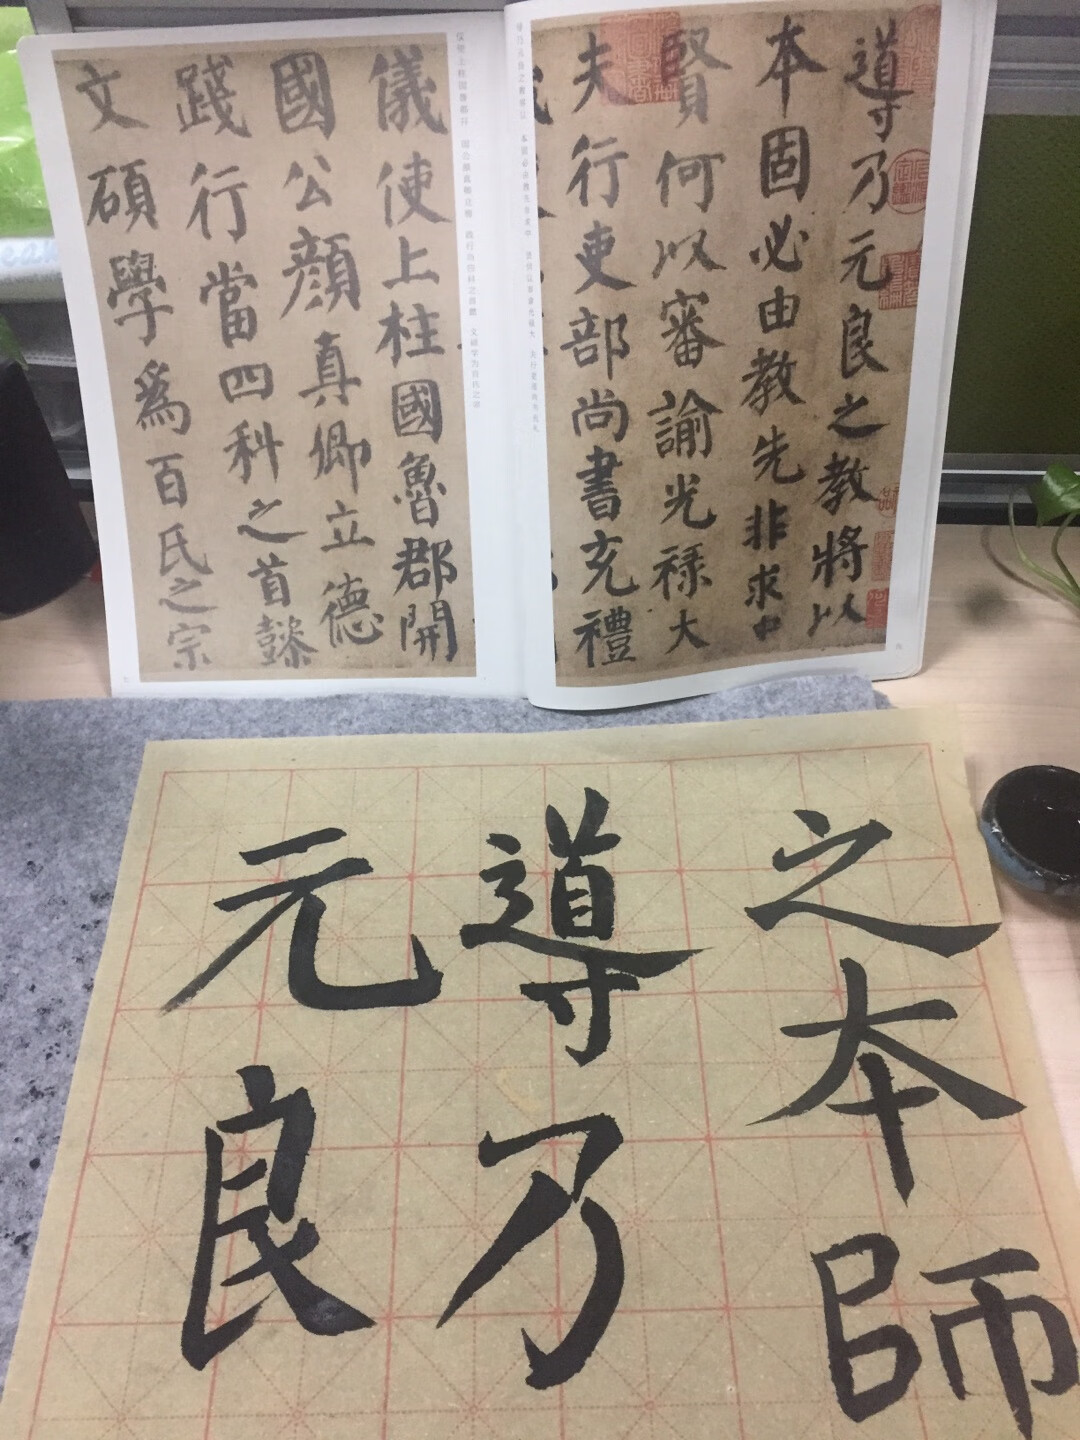 導乃元良之教將以
本固必由教先非求中
賢何以審諭光祿大
夫行吏部尚書充禮
儀使上柱國魯郡開
國公顔真卿立德
踐行當四科之首懿
文碩學為百氏之宗
之本師
導乃
元良